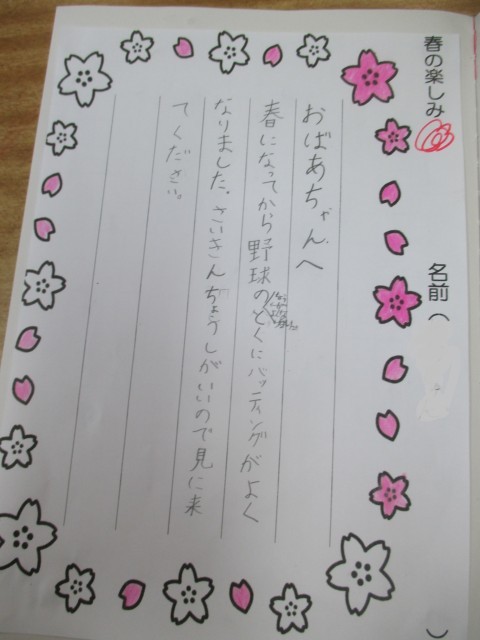 春の楽しみ
名前（　　）
おばあちゃんへ
春になってから野球のとくにバッティングがよく
なりました。さいきんちょうしがいいので見に来
てください。